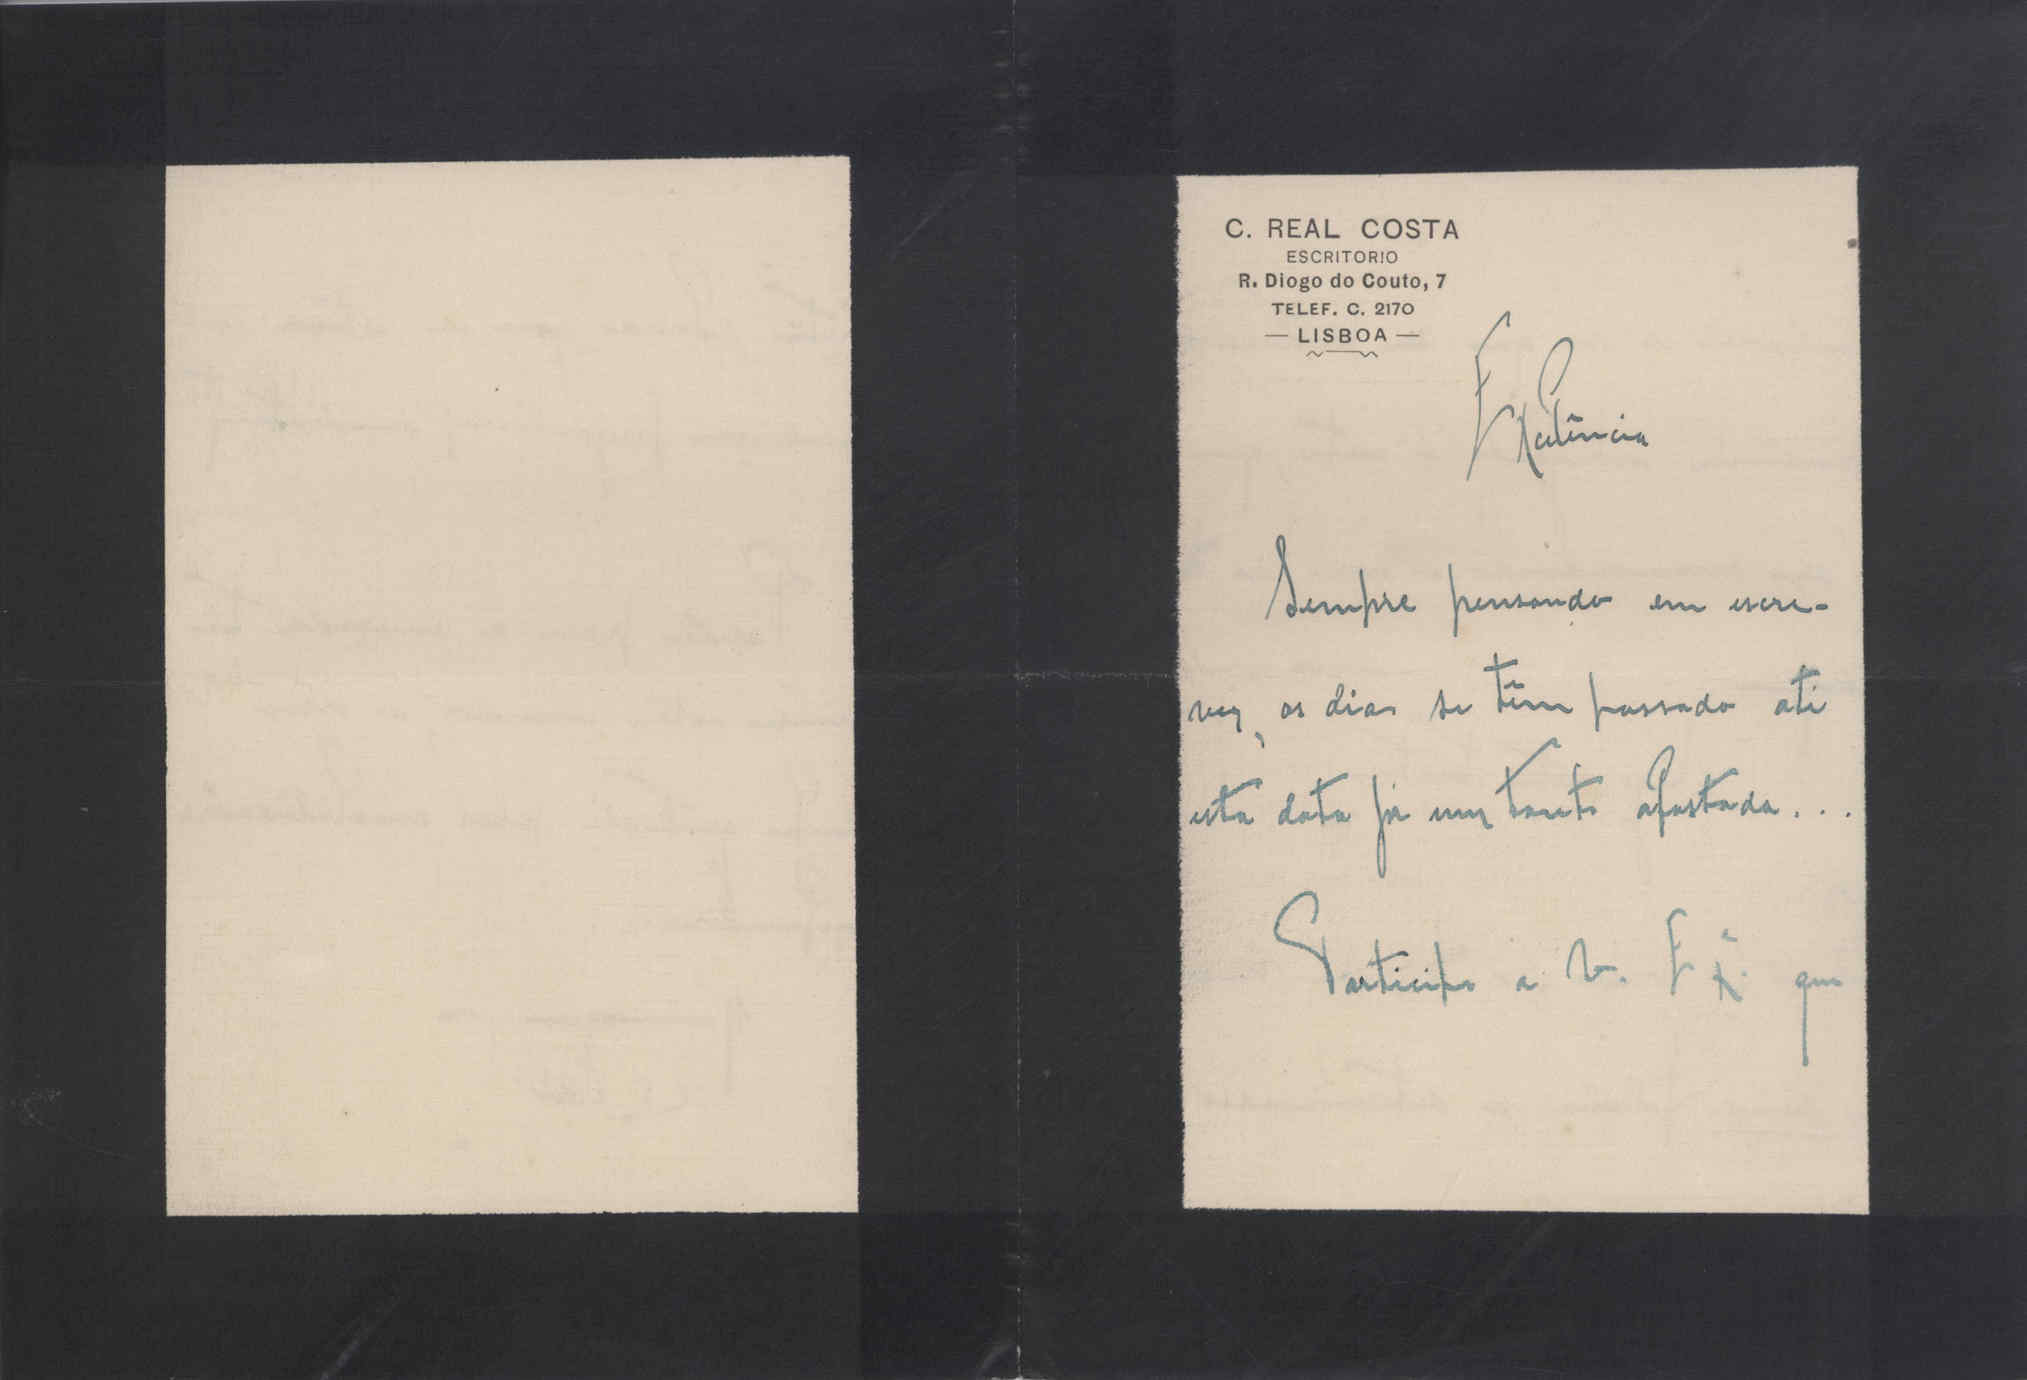 C. REAL COSTA
ESCRITORIO
R. Diogo do Couto, 7
TELEF. C. 2170
— LISBOA —
Exelência
Sempre pensando em escre-
ver, os dias se têm passado até
esta data já um tanto afastada...
Participo a V. Exª que